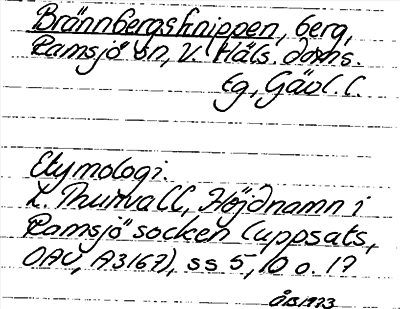 Brännbergsknippen, berg,
Ramsjö sn, V. Häls. doms.
Eg, Gävl. l.
Etymologi.
L. Thunvall, Höjdnamn i
Ramsjö socken (uppsats,
OAU, A3167), ss 5, 10 o. 17
ÅB 1973